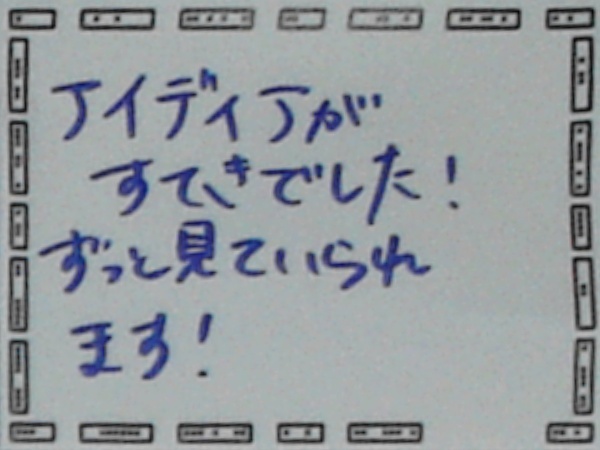 アイディアが
すてきでした!
ずっと見ていられ
ます!